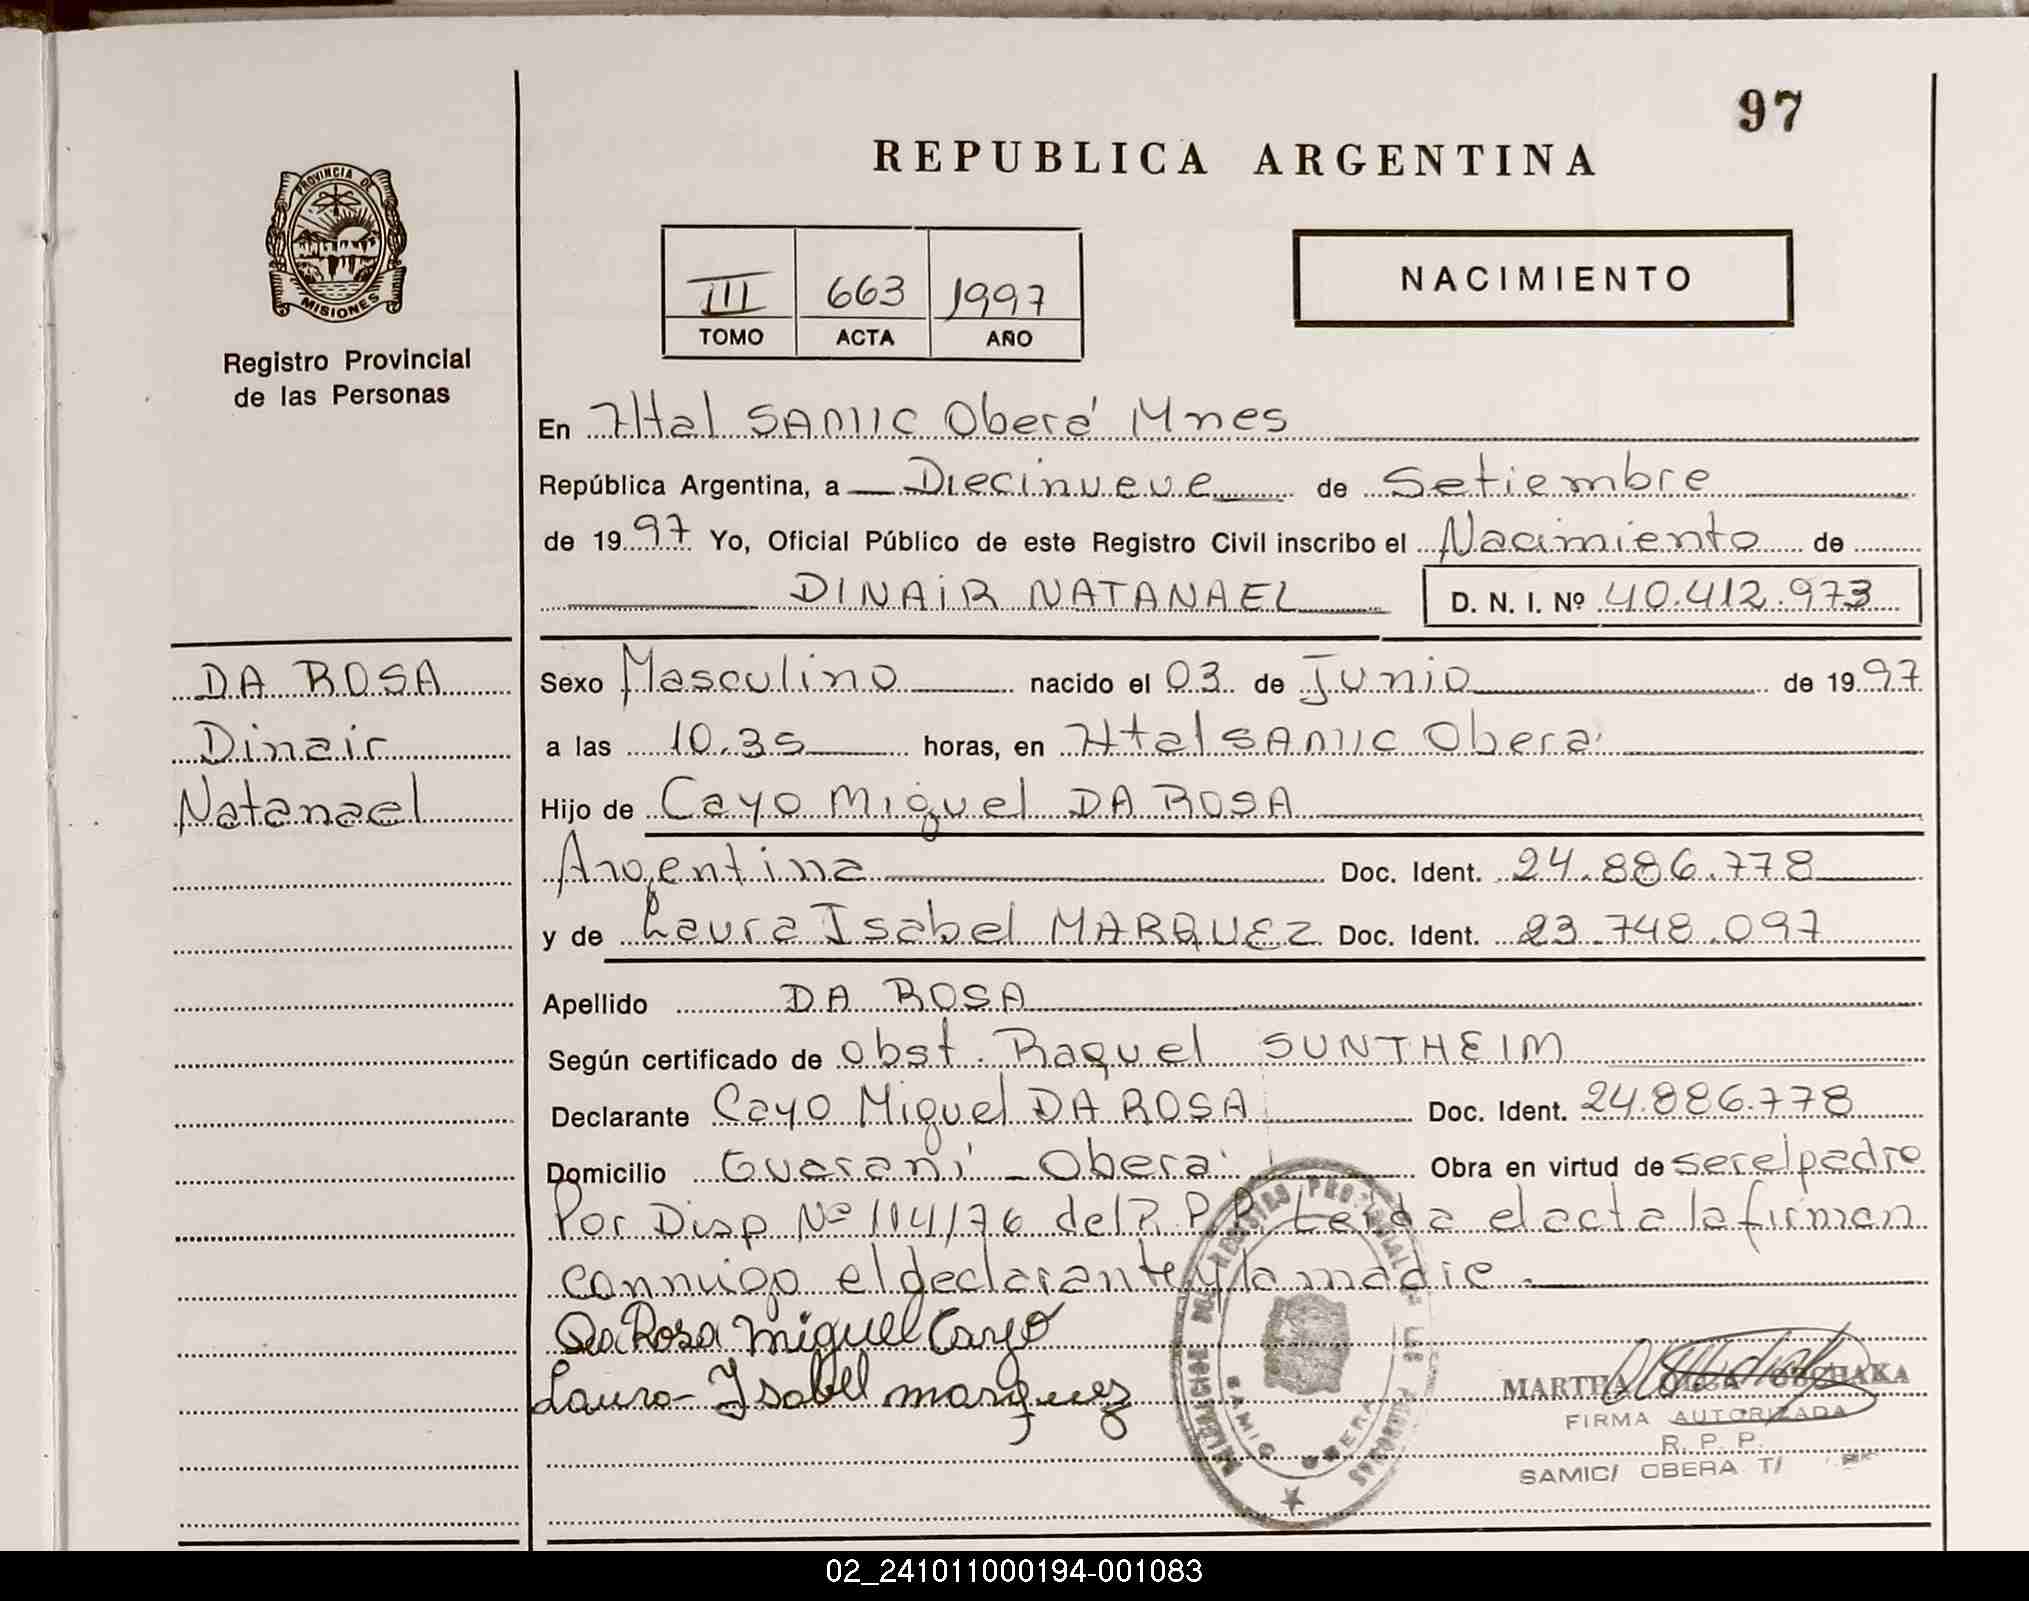 97
REPUBLICA ARGENTINA
PROVINCIA DE
MISIONES
Registro Provincial
de las Personas
III 663 1997
TOMO ACTA AÑO
NACIMIENTO
En Htal SAMIC Oberá Mnes
República Argentina, a Diecinueve de Setiembre
de 1997 Yo, Oficial Público de este Registro Civil inscribo el Nacimiento de
DINAIR NATANAEL D. N. I. Nº 40.412.973
DA ROSA
Dinair
Natanael
Sexo Masculino nacido el 03 de Junio de 1997
a las 10.35 horas, en Htal SAMIC Oberá
Hijo de Cayo Miguel DA ROSA
Argentina Doc. Ident. 24.886.778
y de Laura Isabel MARQUEZ Doc. Ident. 23.748.097
Apellido DA ROSA
Según certificado de obst. Raquel SUNTHEIM
Declarante Cayo Miguel DA ROSA Doc. Ident. 24.886.778
Domicilio Guaraní - Oberá Obra en virtud de ser el padre
Por Disp Nº 114/76 del R.P.P. Leida el acta la firman
conmigo el declarante y la madre.
Da Rosa Miguel Cayo
Laura Isabel marquez
MARTHA
FIRMA AUTORIZADA
R. P. P.
SAMIC/ OBERA T/
REGISTRO PROVINCIAL DE LAS PERSONAS
SAMIC OBERA
02_241011000194-001083